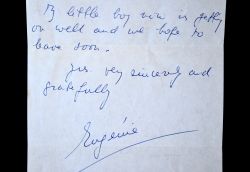 little boy now is getting
on well and we hope to
leave soon.
Yrs. very sincerely and
gratefully
Eugénie